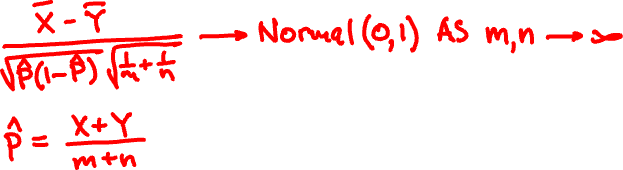 X̄ - Ȳ
√p̂(1-p̂) √1/m + 1/n → Normal (0,1) AS m,n → ∞
p̂ = X+Y / m+n